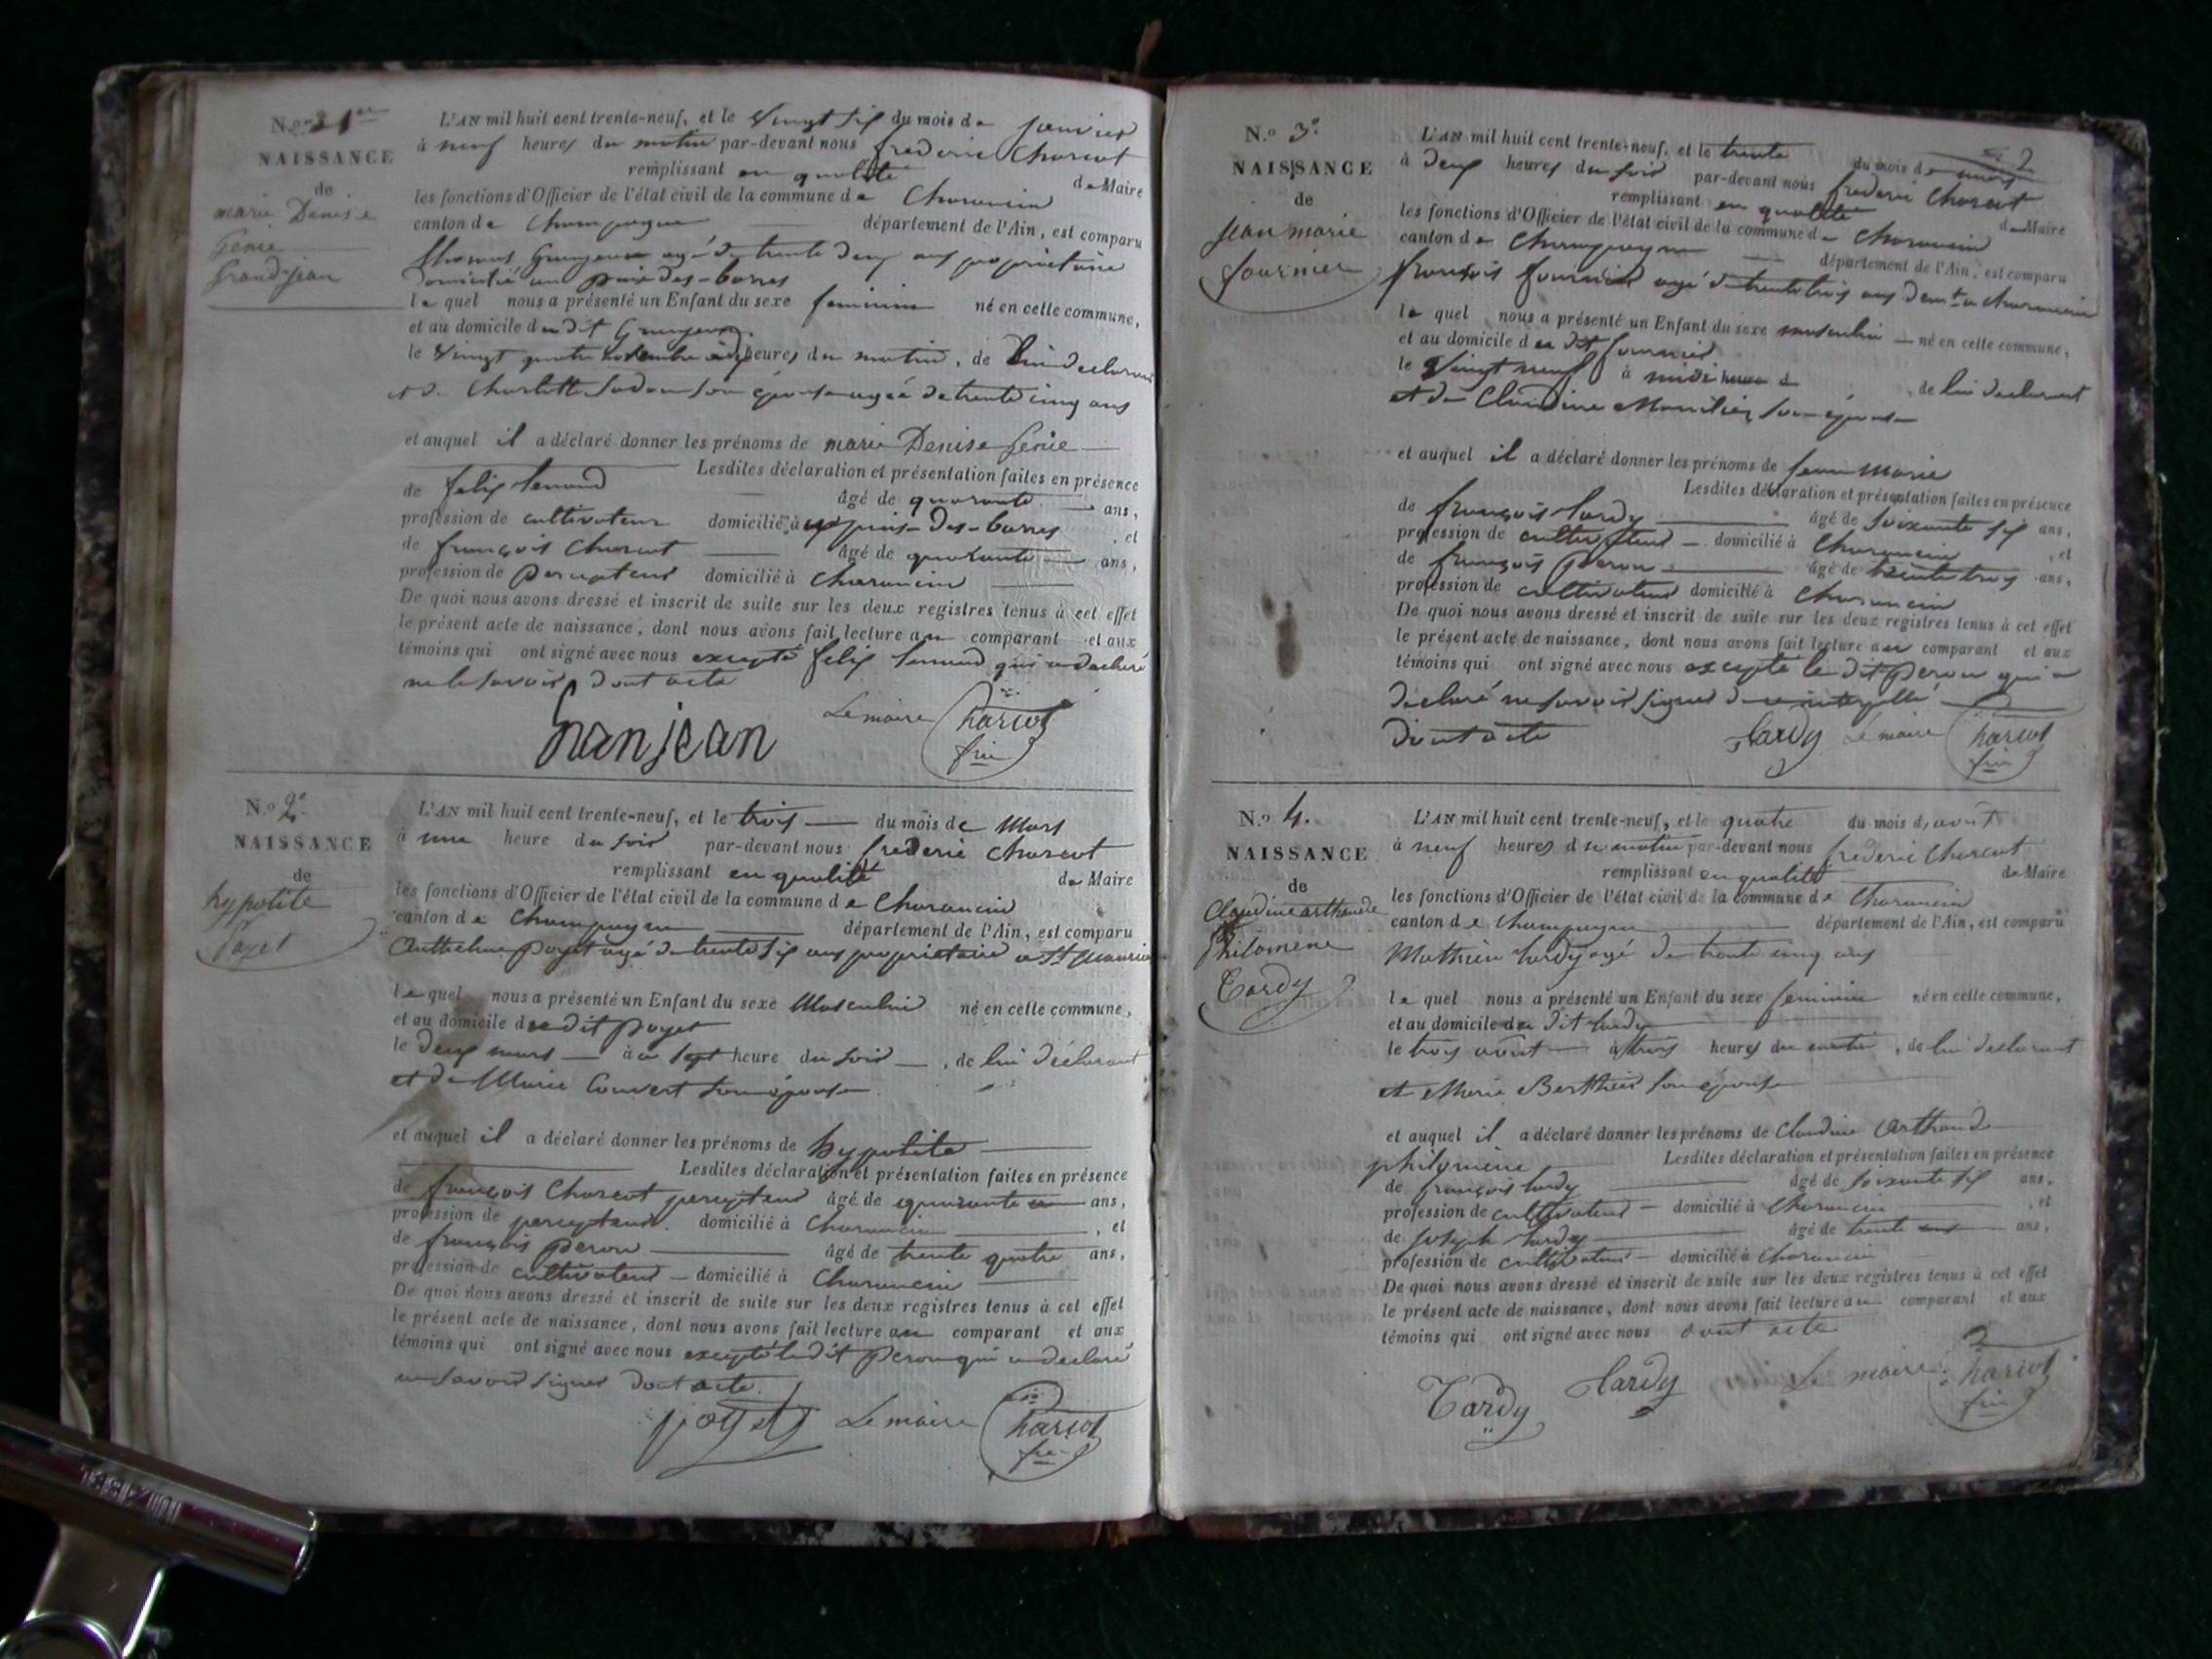 N.o 1er
NAISSANCE
de
marie Denise
Genie
Grandjean
L'AN mil huit cent trente-neuf, et le Vingt six du mois de janvier
à neuf heures du matin par-devant nous frederic Charcot
remplissant en qualité de Maire
les fonctions d'Officier de l'état civil de la commune de Charancin
canton de Champagne département de l'Ain, est comparu
agé de trente deux ans propriétaire
Domicilié au puis-des-barres
le quel nous a présenté un Enfant du sexe feminin né en cette commune,
et au domicile du dit
le Vingt quatre heures du matin, de lui declarant
et de Charlotte son épouse agée de trente cinq ans
et auquel il a déclaré donner les prénoms de marie Denise Genie
Lesdites déclaration et présentation faites en présence
de felix âgé de quarante ans,
profession de cultivateur domicilié à puis-des-barres, et
de françois Charcot âgé de quarante ans,
profession de percepteur domicilié à Charancin
De quoi nous avons dressé et inscrit de suite sur les deux registres tenus à cet effet
le présent acte de naissance, dont nous avons fait lecture au comparant et aux
témoins qui ont signé avec nous excepté felix qui a declaré
ne le savoir dont acte
Granjean Le maire Charcot
fric
N.o 2e
NAISSANCE
de
hypolite
Poyet
L'AN mil huit cent trente-neuf, et le trois du mois de Mars
à une heure du soir par-devant nous frederic Charcot
remplissant en qualité de Maire
les fonctions d'Officier de l'état civil de la commune de Charancin
canton de Champagne département de l'Ain, est comparu
Anthelme poyet agé de trente six ans propriétaire a St Maurice
le quel nous a présenté un Enfant du sexe Masculin né en cette commune,
et au domicile du dit poyet
le deux mars à sept heure du soir, de lui déclarant
et de Marie Convert son épouse
et auquel il a déclaré donner les prénoms de hypolite
Lesdites déclaration et présentation faites en présence
de françois Charcot percepteur âgé de quarante ans,
profession de percepteur domicilié à Charancin, et
de françois peron âgé de trente quatre ans,
profession de cultivateur domicilié à Charancin
De quoi nous avons dressé et inscrit de suite sur les deux registres tenus à cet effet
le présent acte de naissance, dont nous avons fait lecture au comparant et aux
témoins qui ont signé avec nous excepté le dit peron qui a declaré
ne savoir signer dont acte.
poyet Le maire Charcot
fric
2
N.o 3e
NAISSANCE
de
jean marie
fournier
L'AN mil huit cent trente-neuf, et le trente du mois de mars
à deux heures du soir par-devant nous frederic Charcot
remplissant en qualité de Maire
les fonctions d'Officier de l'état civil de la commune de Charancin
canton de Champagne département de l'Ain, est comparu
françois fournier agé de trente trois ans demt a charancin
le quel nous a présenté un Enfant du sexe masculin né en cette commune,
et au domicile du dit fournier
le Vingt neuf à midi heure d , de lui declarant
et de Claudine son épouse
et auquel il a déclaré donner les prénoms de Jean Marie
Lesdites déclaration et présentation faites en présence
de françois tardy âgé de soixante six ans,
profession de cultivateur domicilié à Charancin, et
de françois peron âgé de trente trois ans,
profession de cultivateur domicilié à Charancin
De quoi nous avons dressé et inscrit de suite sur les deux registres tenus à cet effet
le présent acte de naissance, dont nous avons fait lecture au comparant et aux
témoins qui ont signé avec nous excepté le dit peron qui a
declaré ne savoir signer de ce interpellé
dont acte Tardy Le maire Charcot
fric
N.o 4.
NAISSANCE
de
Claudine arthaude
Philomene
Tardy
L'AN mil huit cent trente-neuf, et le quatre du mois d, aout
à neuf heures du matin par-devant nous frederic Charcot
remplissant en qualité de Maire
les fonctions d'Officier de l'état civil de la commune de Charancin
canton de Champagne département de l'Ain, est comparu
Mathieu tardy agé de trente cinq ans
le quel nous a présenté un Enfant du sexe feminin né en cette commune,
et au domicile du dit tardy
le trois août à trois heures du matin, de lui declarant
et Marie Berthier son épouse
et auquel il a déclaré donner les prénoms de Claudine Arthaude
philomène Lesdites déclaration et présentation faites en présence
de françois tardy âgé de soixante six ans,
profession de cultivateur domicilié à Charancin, et
de Joseph tardy âgé de trente ans,
profession de cultivateur domicilié à Charancin
De quoi nous avons dressé et inscrit de suite sur les deux registres tenus à cet effet
le présent acte de naissance, dont nous avons fait lecture au comparant et aux
témoins qui ont signé avec nous dont acte
Tardy Tardy Le maire Charcot
fric